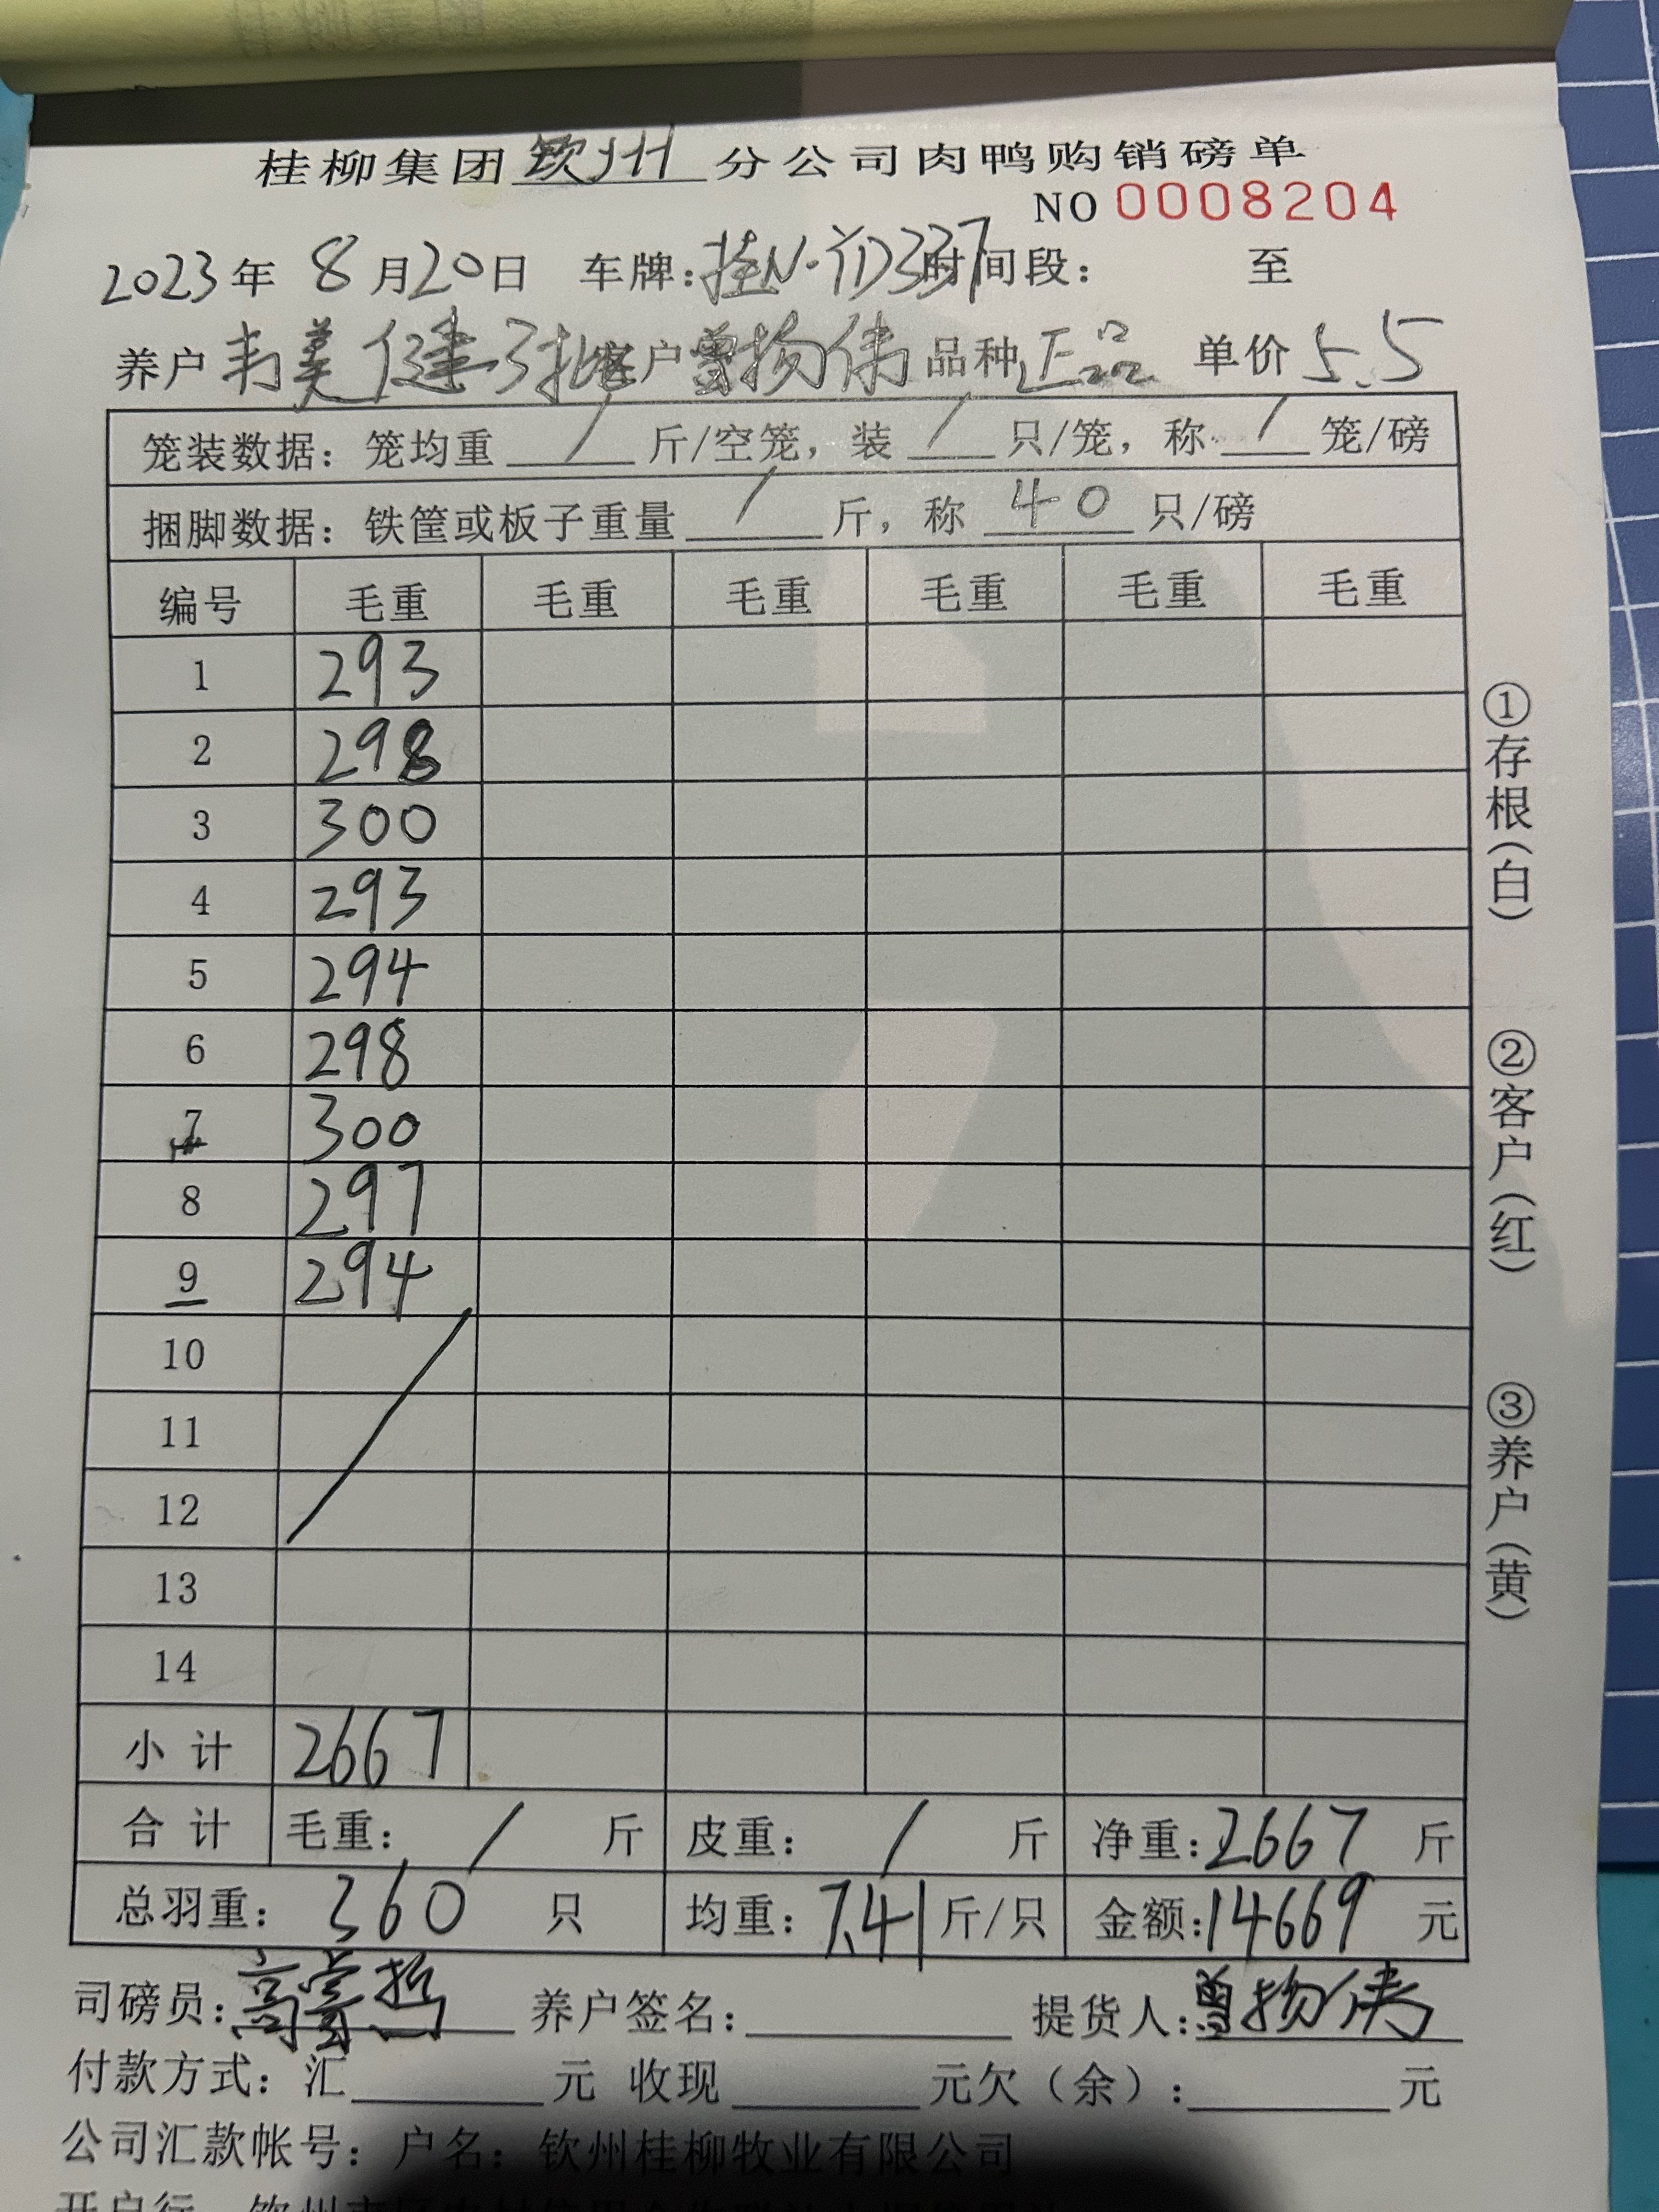 桂柳集团钦州分公司肉鸭购销磅单
NO 0008204
2023年 8月20日 车牌：桂N·D337 时间段： 至
养户 韦美健3批 客户 曾扬伟 品种 正品 单价 5.5
笼装数据：笼均重 / 斤/空笼，装 / 只/笼，称 / 笼/磅
捆脚数据：铁筐或板子重量 / 斤，称 40 只/磅
编号 毛重 毛重 毛重 毛重 毛重 毛重
1 293
2 298
3 300
4 293
5 294
6 298
7 300
8 297
9 294
10
11
12
13
14
小计 2667
合计 毛重： / 斤 皮重： / 斤 净重：2667 斤
总羽重： 360 只 均重：7.41 斤/只 金额：14669 元
司磅员： 养户签名： 提货人：曾扬伟
付款方式：汇 元 收现 元欠（余）： 元
公司汇款帐号：户名：钦州桂柳牧业有限公司
开户行
①存根（白）
②客户（红）
③养户（黄）